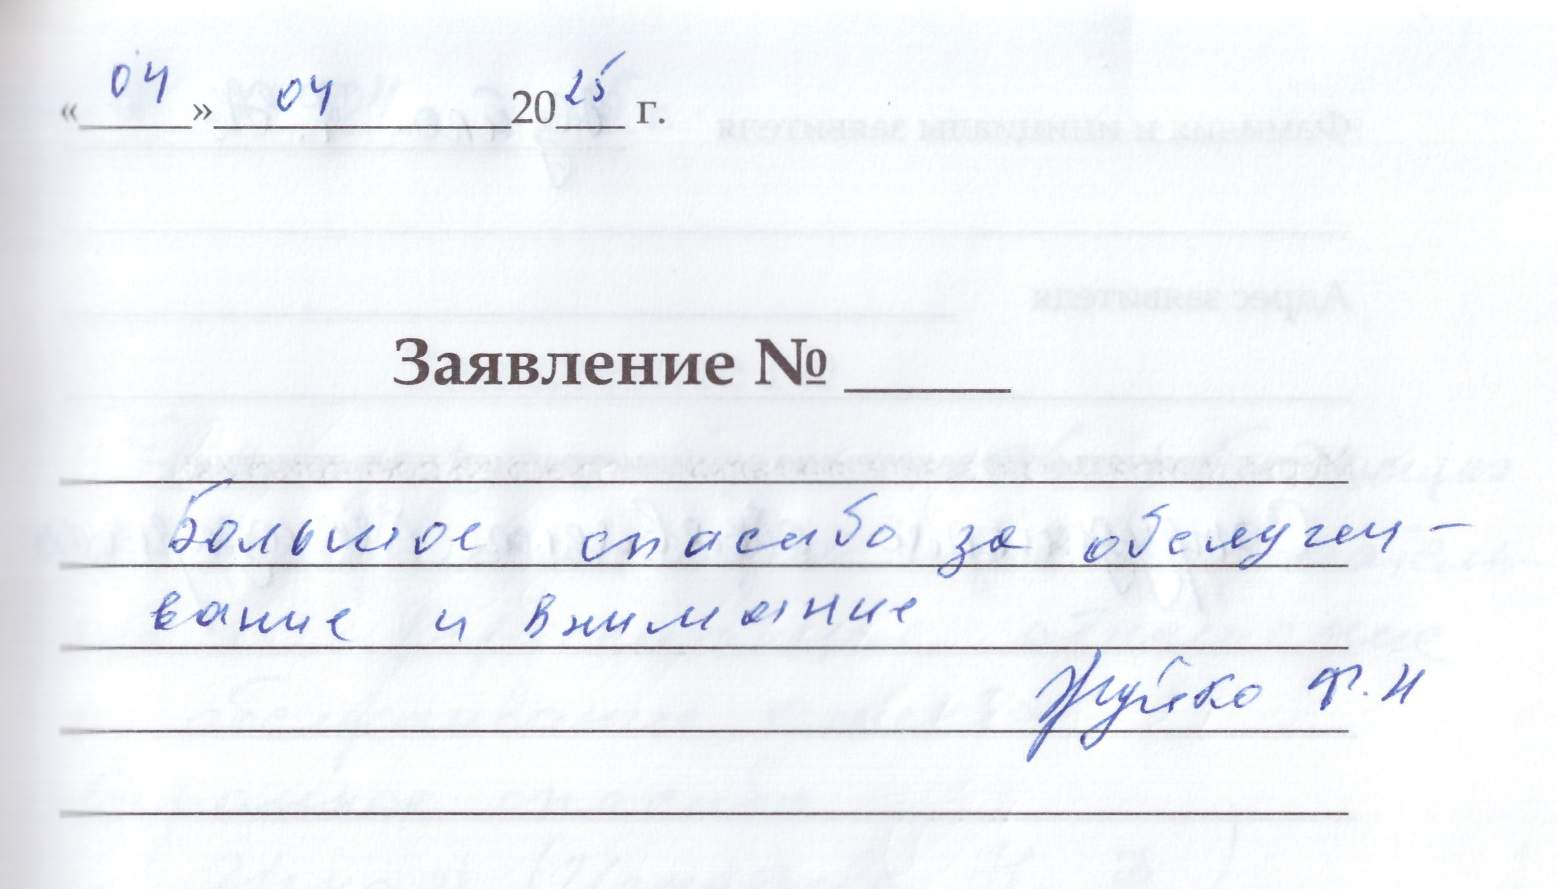 «04» 04 2025 г.
Заявление №
Большое спасибо за обслужи-
вание и внимание
Ф.И